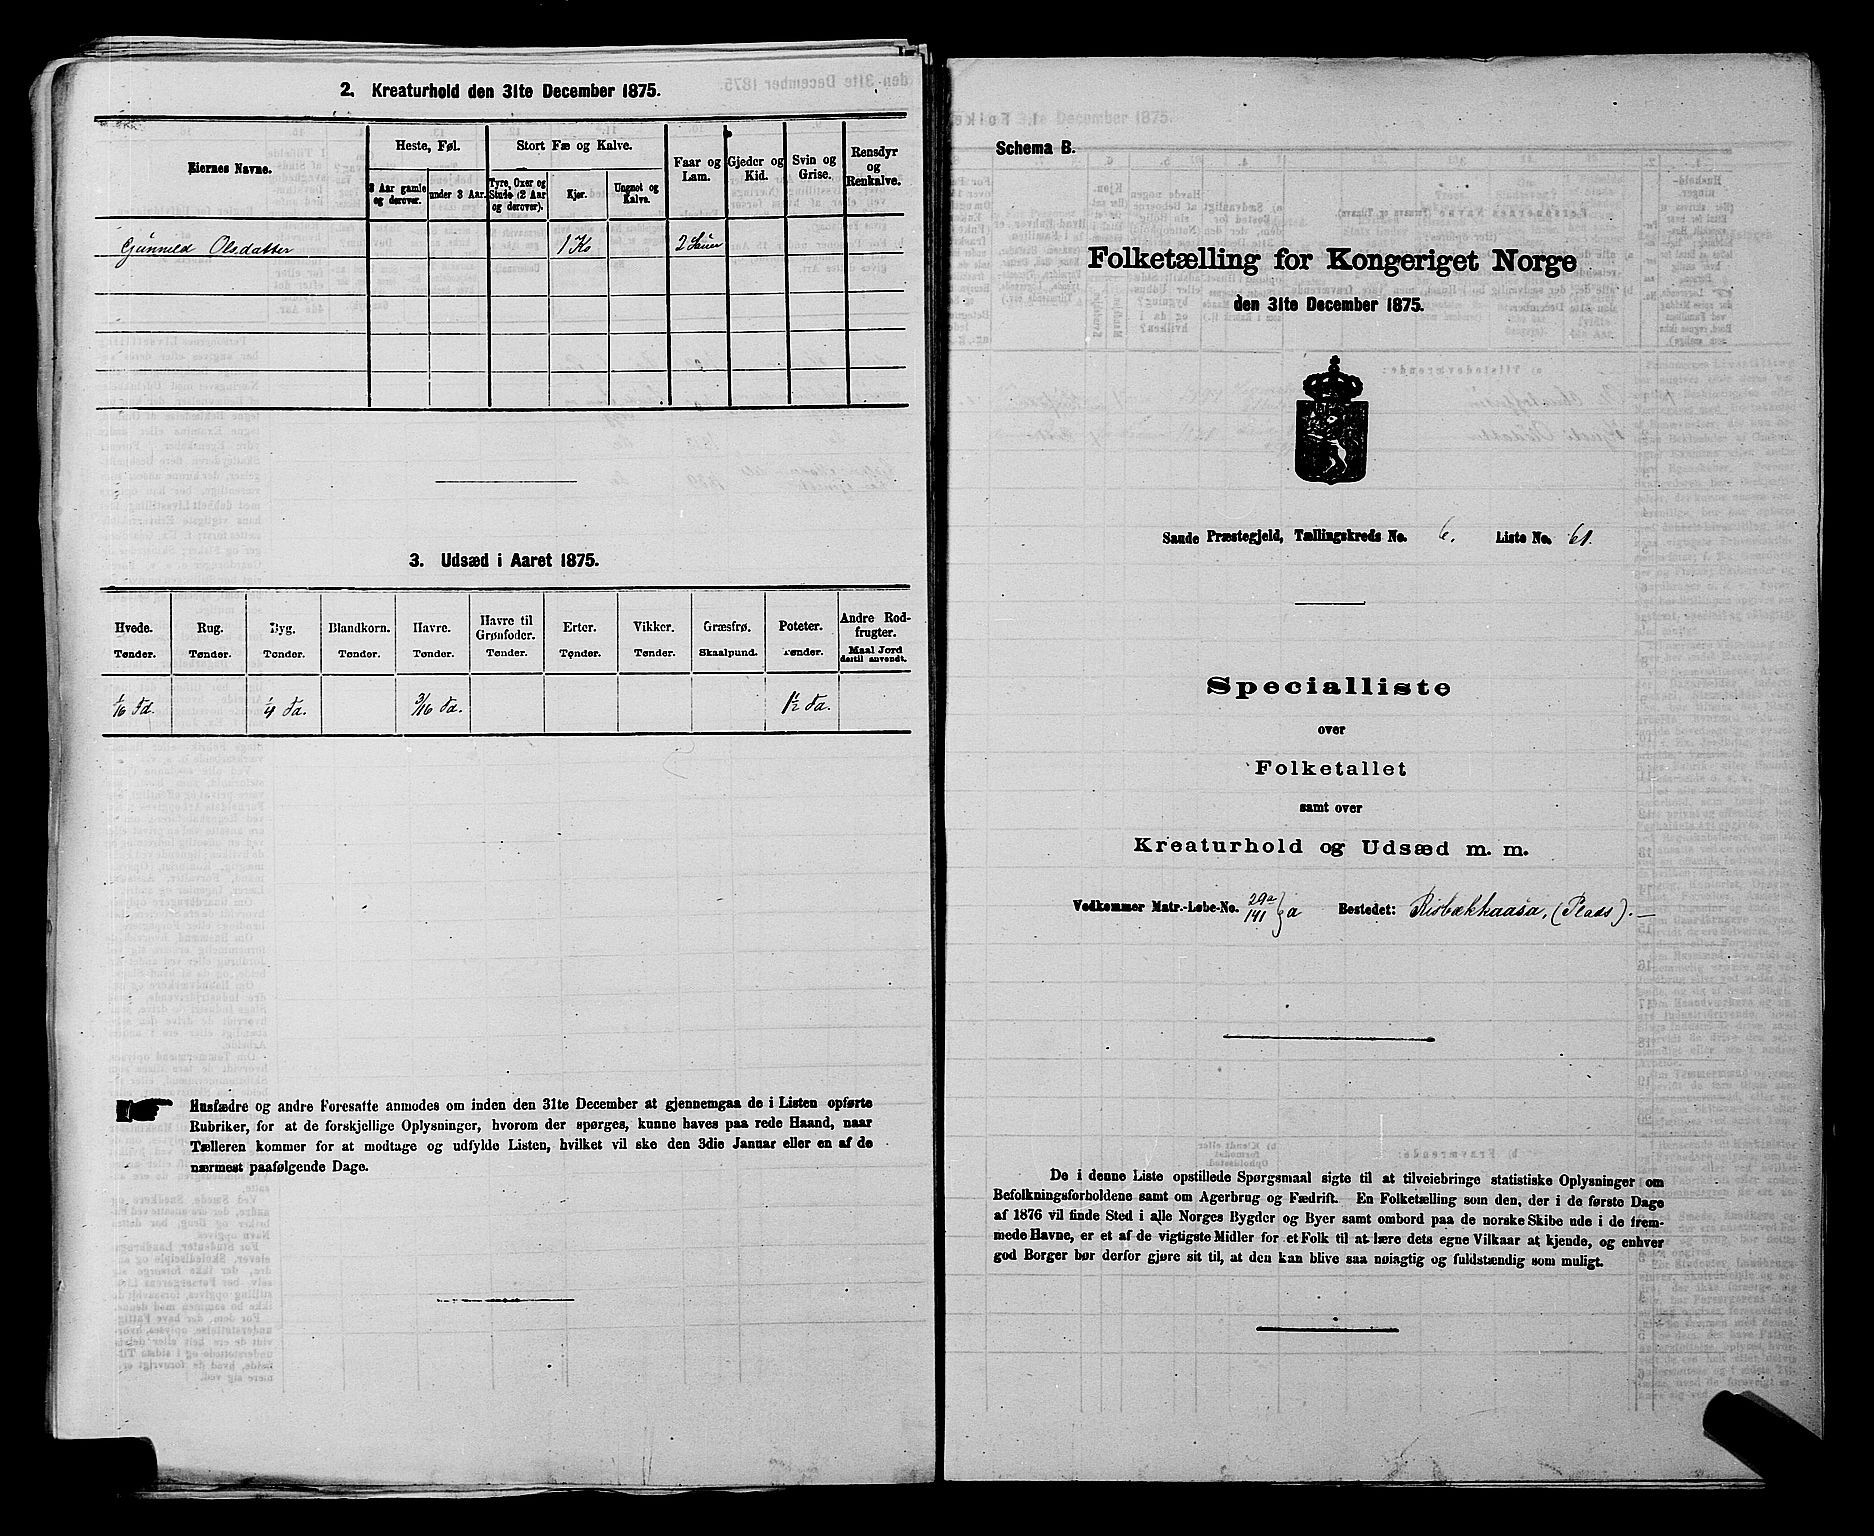 2. Kreaturhold den 31te December 1875.
Eiernes Navne.
Heste, Føl.
Stort Fæ og Kalve.
Faar og Lam.
Gjeder og Kid.
Svin og Grise.
Rensdyr og Renkalve.
3 Aar gamle og derover.
under 3 Aar.
Tyre, Oxer og Stude (2 Aar og derover).
Kjør.
Ungnet og Kalve.
Gunneld Olsdatter 1 Ko 2 Sauer
3. Udsæd i Aaret 1875.
Hvede. Rug. Byg. Blandkorn. Havre. Havre til Grønfoder. Erter. Vikker. Græsfrø. Poteter. Andre Rodfrugter.
Tønder. Tønder. Tønder. Tønder. Tønder. Tønder. Tønder. Tønder. Skaalpund. Tønder. Maal Jord dertil anvendt.
1/16 Td. 1/4 Td. 3/16 Td. 1 1/2 Td.
Husfædre og andre Foresatte anmodes om inden den 31te December at gjennemgaa de i Listen opførte
Rubriker, for at de forskjellige Oplysninger, hvorom der spørges, kunne haves paa rede Haand, naar
Tælleren kommer for at modtage og udfylde Listen, hvilket vil ske den 3die Januar eller en af de
nærmest paafølgende Dage.
Schema B.
Folketælling for Kongeriget Norge
den 31te December 1875.
Sande Præstegjeld, Tællingskreds No. 6. Liste No. 61.
Specialliste
over
Folketallet
samt over
Kreaturhold og Udsæd m. m.
Vedkommer Matr.-Løbe-No. 29a/141 a Bestedet: Risbækkaasa, (Plads).
De i denne Liste opstillede Spørgsmaal sigte til at tilveiebringe statistiske Oplysninger om
Befolkningsforholdene samt om Agerbrug og Fædrift. En Folketælling som den, der i de første Dage
af 1876 vil finde Sted i alle Norges Bygder og Byer samt ombord paa de norske Skibe ude i de frem-
mede Havne, er et af de vigtigste Midler for et Folk til at lære dets egne Vilkaar at kjende, og enhver
god Borger bør derfor gjøre sit til, at den kan blive saa nøiagtig og fuldstændig som muligt.